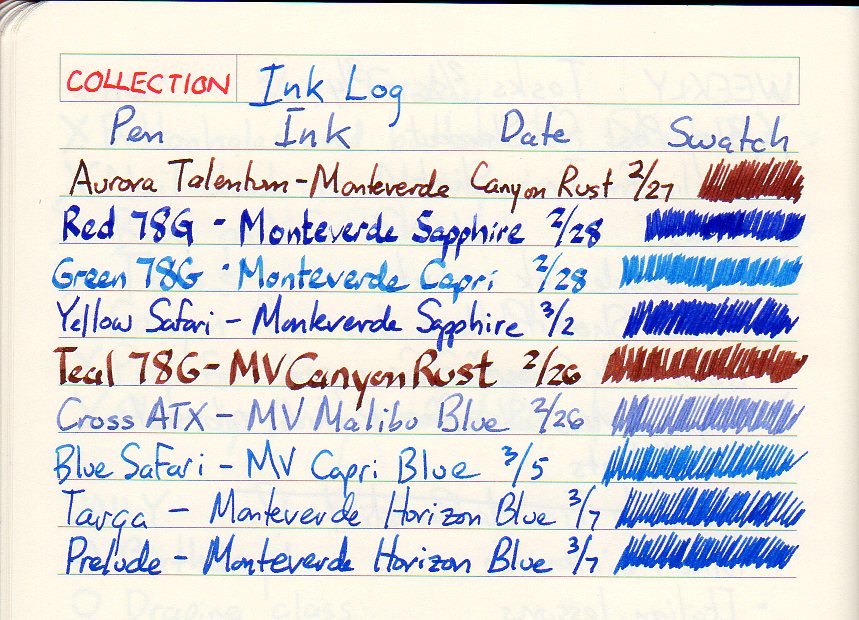 COLLECTION Ink Log
Pen Ink Date Swatch
Aurora Talentum - Monteverde Canyon Rust 2/27
Red 78G - Monteverde Sapphire 2/28
Green 78G - Monteverde Capri 2/28
Yellow Safari - Monteverde Sapphire 3/2
Teal 78G - MV Canyon Rust 2/26
Cross ATX - MV Malibu Blue 2/26
Blue Safari - MV Capri Blue 3/5
Targa - Monteverde Horizon Blue 3/7
Prelude - Monteverde Horizon Blue 3/7